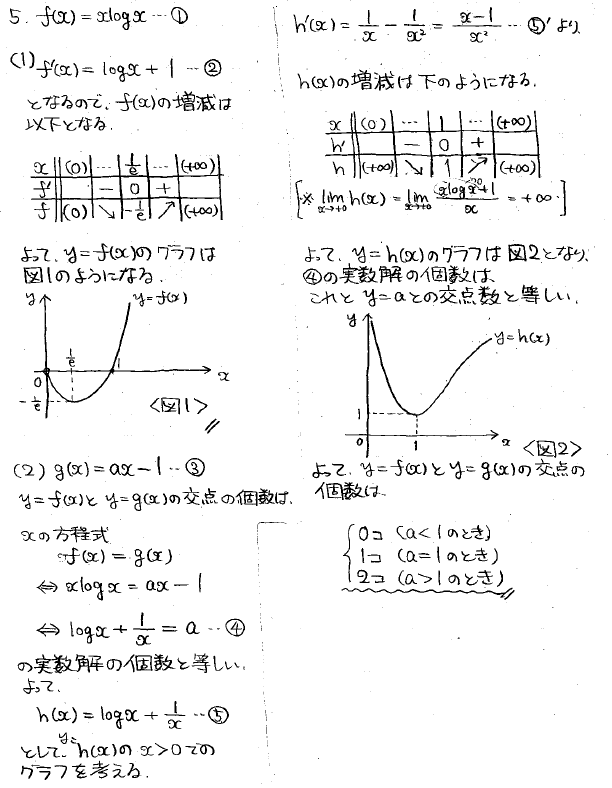 5. f(x) = xlogx … ①
(1) f'(x) = logx + 1 … ②
となるので、f(x)の増減は
以下となる.
x (0) … 1/e … (+∞)
f' − 0 +
f (0) ↘ −1/e ↗ (+∞)
よって、y=f(x)のグラフは
図1のようになる.
y
y=f(x)
1/e
1
0
x
−1/e
<図1>
(2) g(x) = ax − 1 … ③
y=f(x)と y=g(x)の交点の個数は、
xの方程式
f(x) = g(x)
⇔ xlogx = ax − 1
⇔ logx + 1/x = a … ④
の実数解の個数と等しい.
よって、
h(x) = logx + 1/x … ⑤
として、y=h(x)の x>0での
グラフを考える.
h'(x) = 1/x − 1/x² = (x−1)/x² … ⑤' より
h(x)の増減は下のようになる.
x (0) … 1 … (+∞)
h' − 0 +
h (+∞) ↘ 1 ↗ (+∞)
[※ lim x→+0 h(x) = lim x→+0 (xlogx+1)/x = +∞ ]
よって、y=h(x)のグラフは図2となり、
④の実数解の個数は、
これと y=aとの交点数と等しい.
y
y=h(x)
1
0
1
x
<図2>
よって、y=f(x)と y=g(x)の交点の
個数は
0コ (a<1のとき)
1コ (a=1のとき)
2コ (a>1のとき)